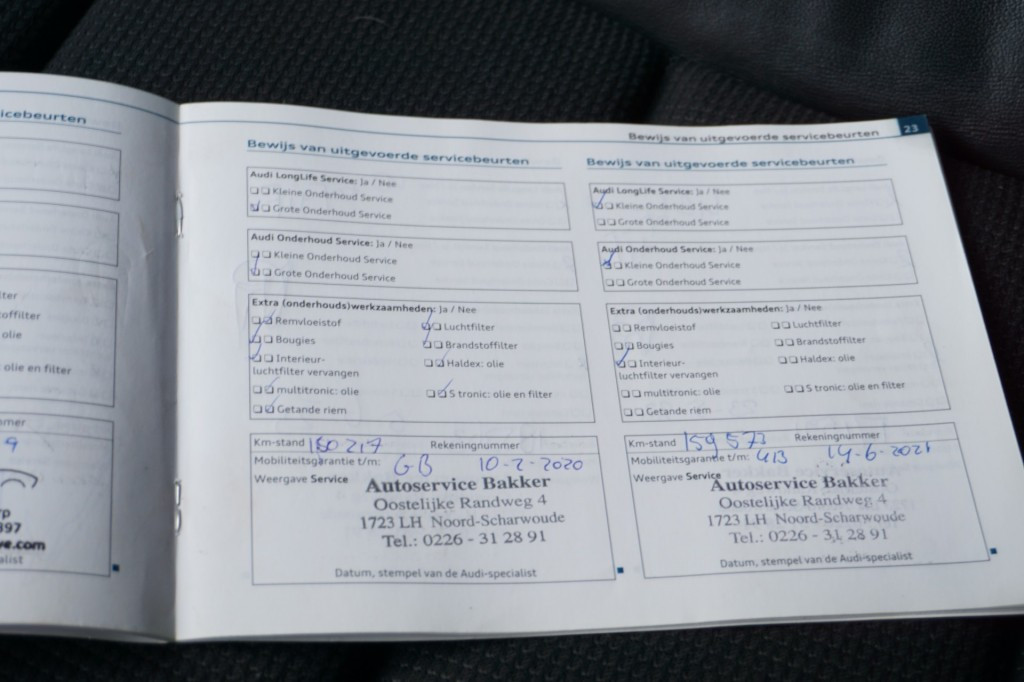 icebeurten
ter
offilter
olie
olie en filter
mer
9
rp
397
ve.com
alist
Bewijs van uitgevoerde servicebeurten 23
Bewijs van uitgevoerde servicebeurten
Audi LongLife Service: Ja / Nee
Kleine Onderhoud Service
Grote Onderhoud Service
Audi Onderhoud Service: Ja / Nee
Kleine Onderhoud Service
Grote Onderhoud Service
Extra (onderhouds)werkzaamheden: Ja / Nee
Remvloeistof Luchtfilter
Bougies Brandstoffilter
Interieur- Haldex: olie
luchtfilter vervangen
multitronic: olie S tronic: olie en filter
Getande riem
Km-stand 150217 Rekeningnummer
Mobiliteitsgarantie t/m: GB 10-2-2020
Weergave Service
Autoservice Bakker
Oostelijke Randweg 4
1723 LH Noord-Scharwoude
Tel.: 0226 - 31 28 91
Datum, stempel van de Audi-specialist
Bewijs van uitgevoerde servicebeurten
Audi LongLife Service: Ja / Nee
Kleine Onderhoud Service
Grote Onderhoud Service
Audi Onderhoud Service: Ja / Nee
Kleine Onderhoud Service
Grote Onderhoud Service
Extra (onderhouds)werkzaamheden: Ja / Nee
Remvloeistof Luchtfilter
Bougies Brandstoffilter
Interieur- Haldex: olie
luchtfilter vervangen
multitronic: olie S tronic: olie en filter
Getande riem
Km-stand 159573 Rekeningnummer
Mobiliteitsgarantie t/m: 14-6-2021
Weergave Service
Autoservice Bakker
Oostelijke Randweg 4
1723 LH Noord-Scharwoude
Tel.: 0226 - 31 28 91
Datum, stempel van de Audi-specialist